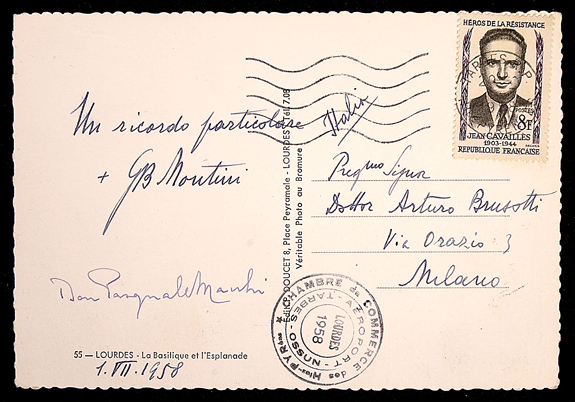 Un ricordo particolare
+ GB Montini
Don Pasquale Macchi
55 — LOURDES - La Basilique et l'Esplanade
1.VII.1958
DOUCET 8, Place Peyramale - LOURDES Tél. 7.08
Véritable Photo au Bromure
HÉROS DE LA RÉSISTANCE
POSTES
8F
JEAN CAVAILLES
1903-1944
REPUBLIQUE FRANÇAISE
TARBES
Italia
Preg mo Signor
Dottor Arturo Brusotti
Via Orazio 3
Milano
CHAMBRE de COMMERCE des Htes PYRÉnées
AÉROPORT - TARBES - OSSUN
LOURDES
1958